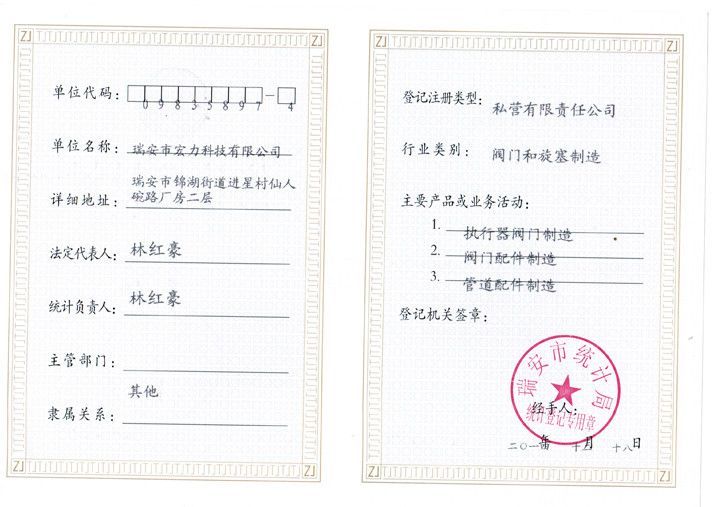 单位代码：09835897-4
单位名称：瑞安市宏力科技有限公司
瑞安市锦湖街道进星村仙人
详细地址：碗路厂房二层
法定代表人：林红豪
统计负责人：林红豪
主管部门：
其他
隶属关系：
登记注册类型：私营有限责任公司
行业类别：阀门和旋塞制造
主要产品或业务活动：
1. 执行器阀门制造
2. 阀门配件制造
3. 管道配件制造
登记机关签章：
瑞安市统计局
经手人：
统计登记专用章